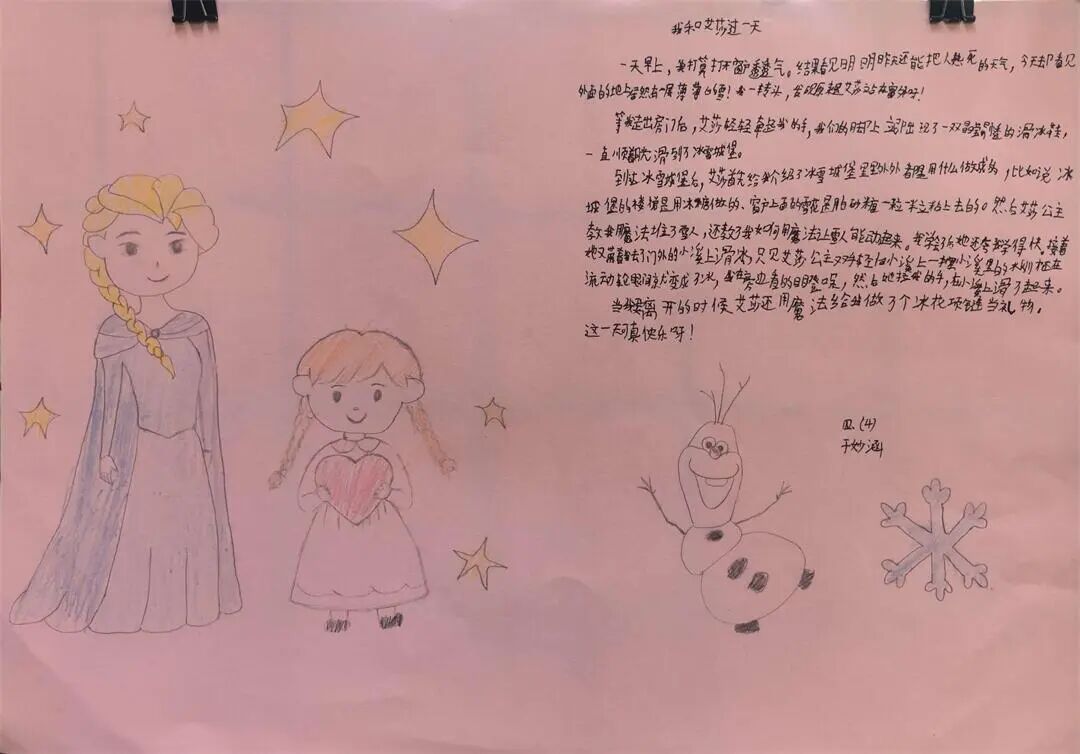 我和艾莎过一天
一天早上，我打算打开窗透透气。结果看见明明昨天还能把人热死的天气，今天却看见
外面的地上居然有一层薄薄的雪！我一转头，发现原来艾莎站在窗外呀！
等我走出房门后，艾莎轻轻牵起我的手，我们的脚上立即出现了一双晶莹剔透的滑冰鞋，
一直顺着光滑到了冰雪城堡。
到达冰雪城堡后，艾莎首先给我介绍了冰雪城堡里里外外都是用什么做成的，比如说冰
城堡的楼梯是用冰糖做的、窗户上面的雪花是用砂糖一粒一粒粘上去的。然后艾莎公主
教我用魔法堆了雪人，还教了我如何用魔法让雪人能动起来。我学了后她还夸我学得快。接着
她又带着我去了门外的小溪上滑冰，只见艾莎公主双手轻往小溪上一摆小溪里的水刚还在
流动转眼间就变成了冰，我在旁边看的目瞪口呆，然后她拉我的手，在小溪上滑了起来。
当我要离开的时候艾莎还用魔法给我做了个冰花项链当礼物。
这一天可真快乐呀！
四.(4)
于妙涵